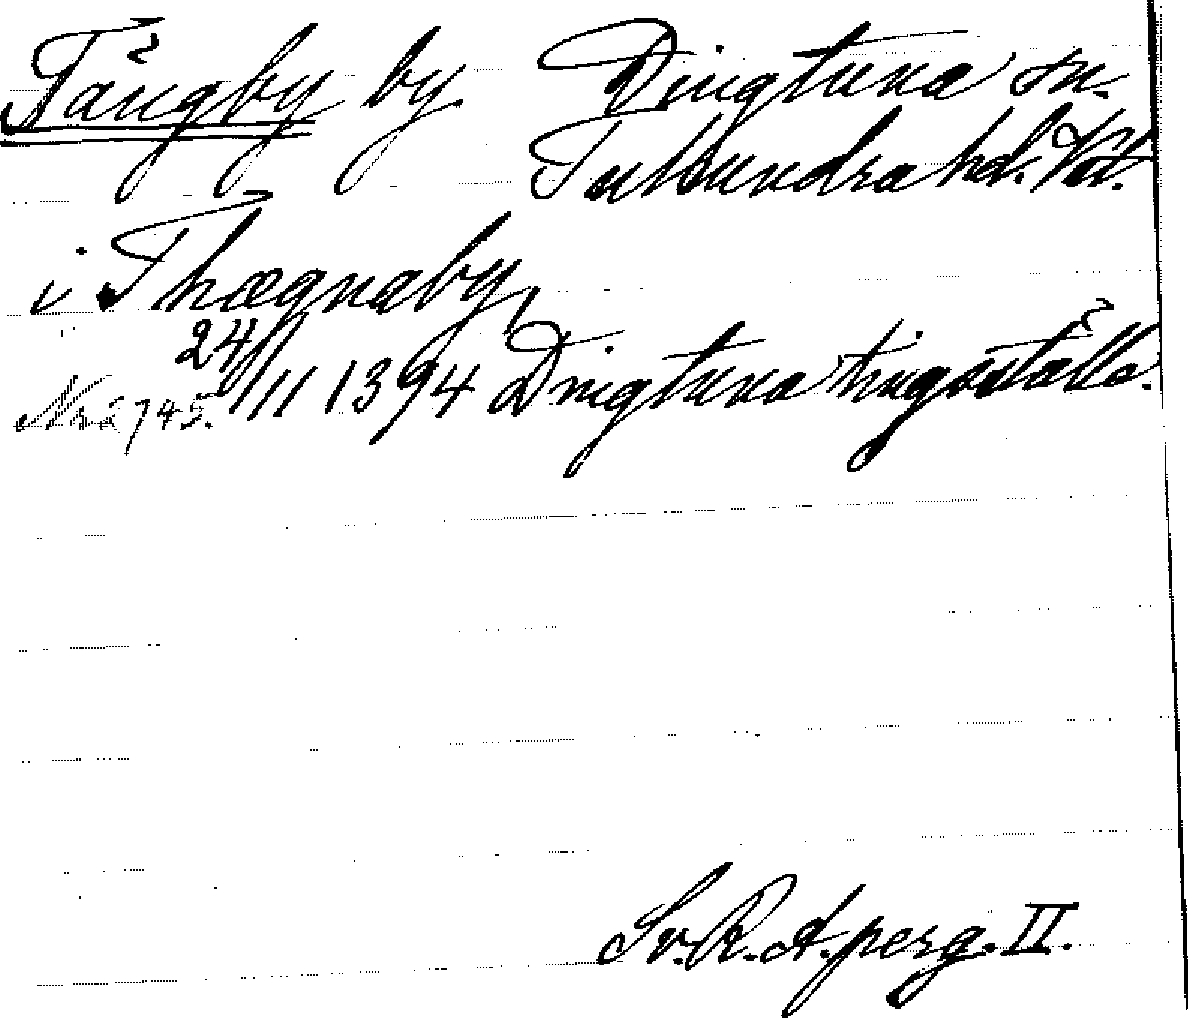 Tångby by. Dingtuna sn.
Tuhundra hd. Vstm.
i Thægnaby,
24/11 1394 Dingtuna tingställe.
Nr 2745.
Sv. R. A. perg. II.